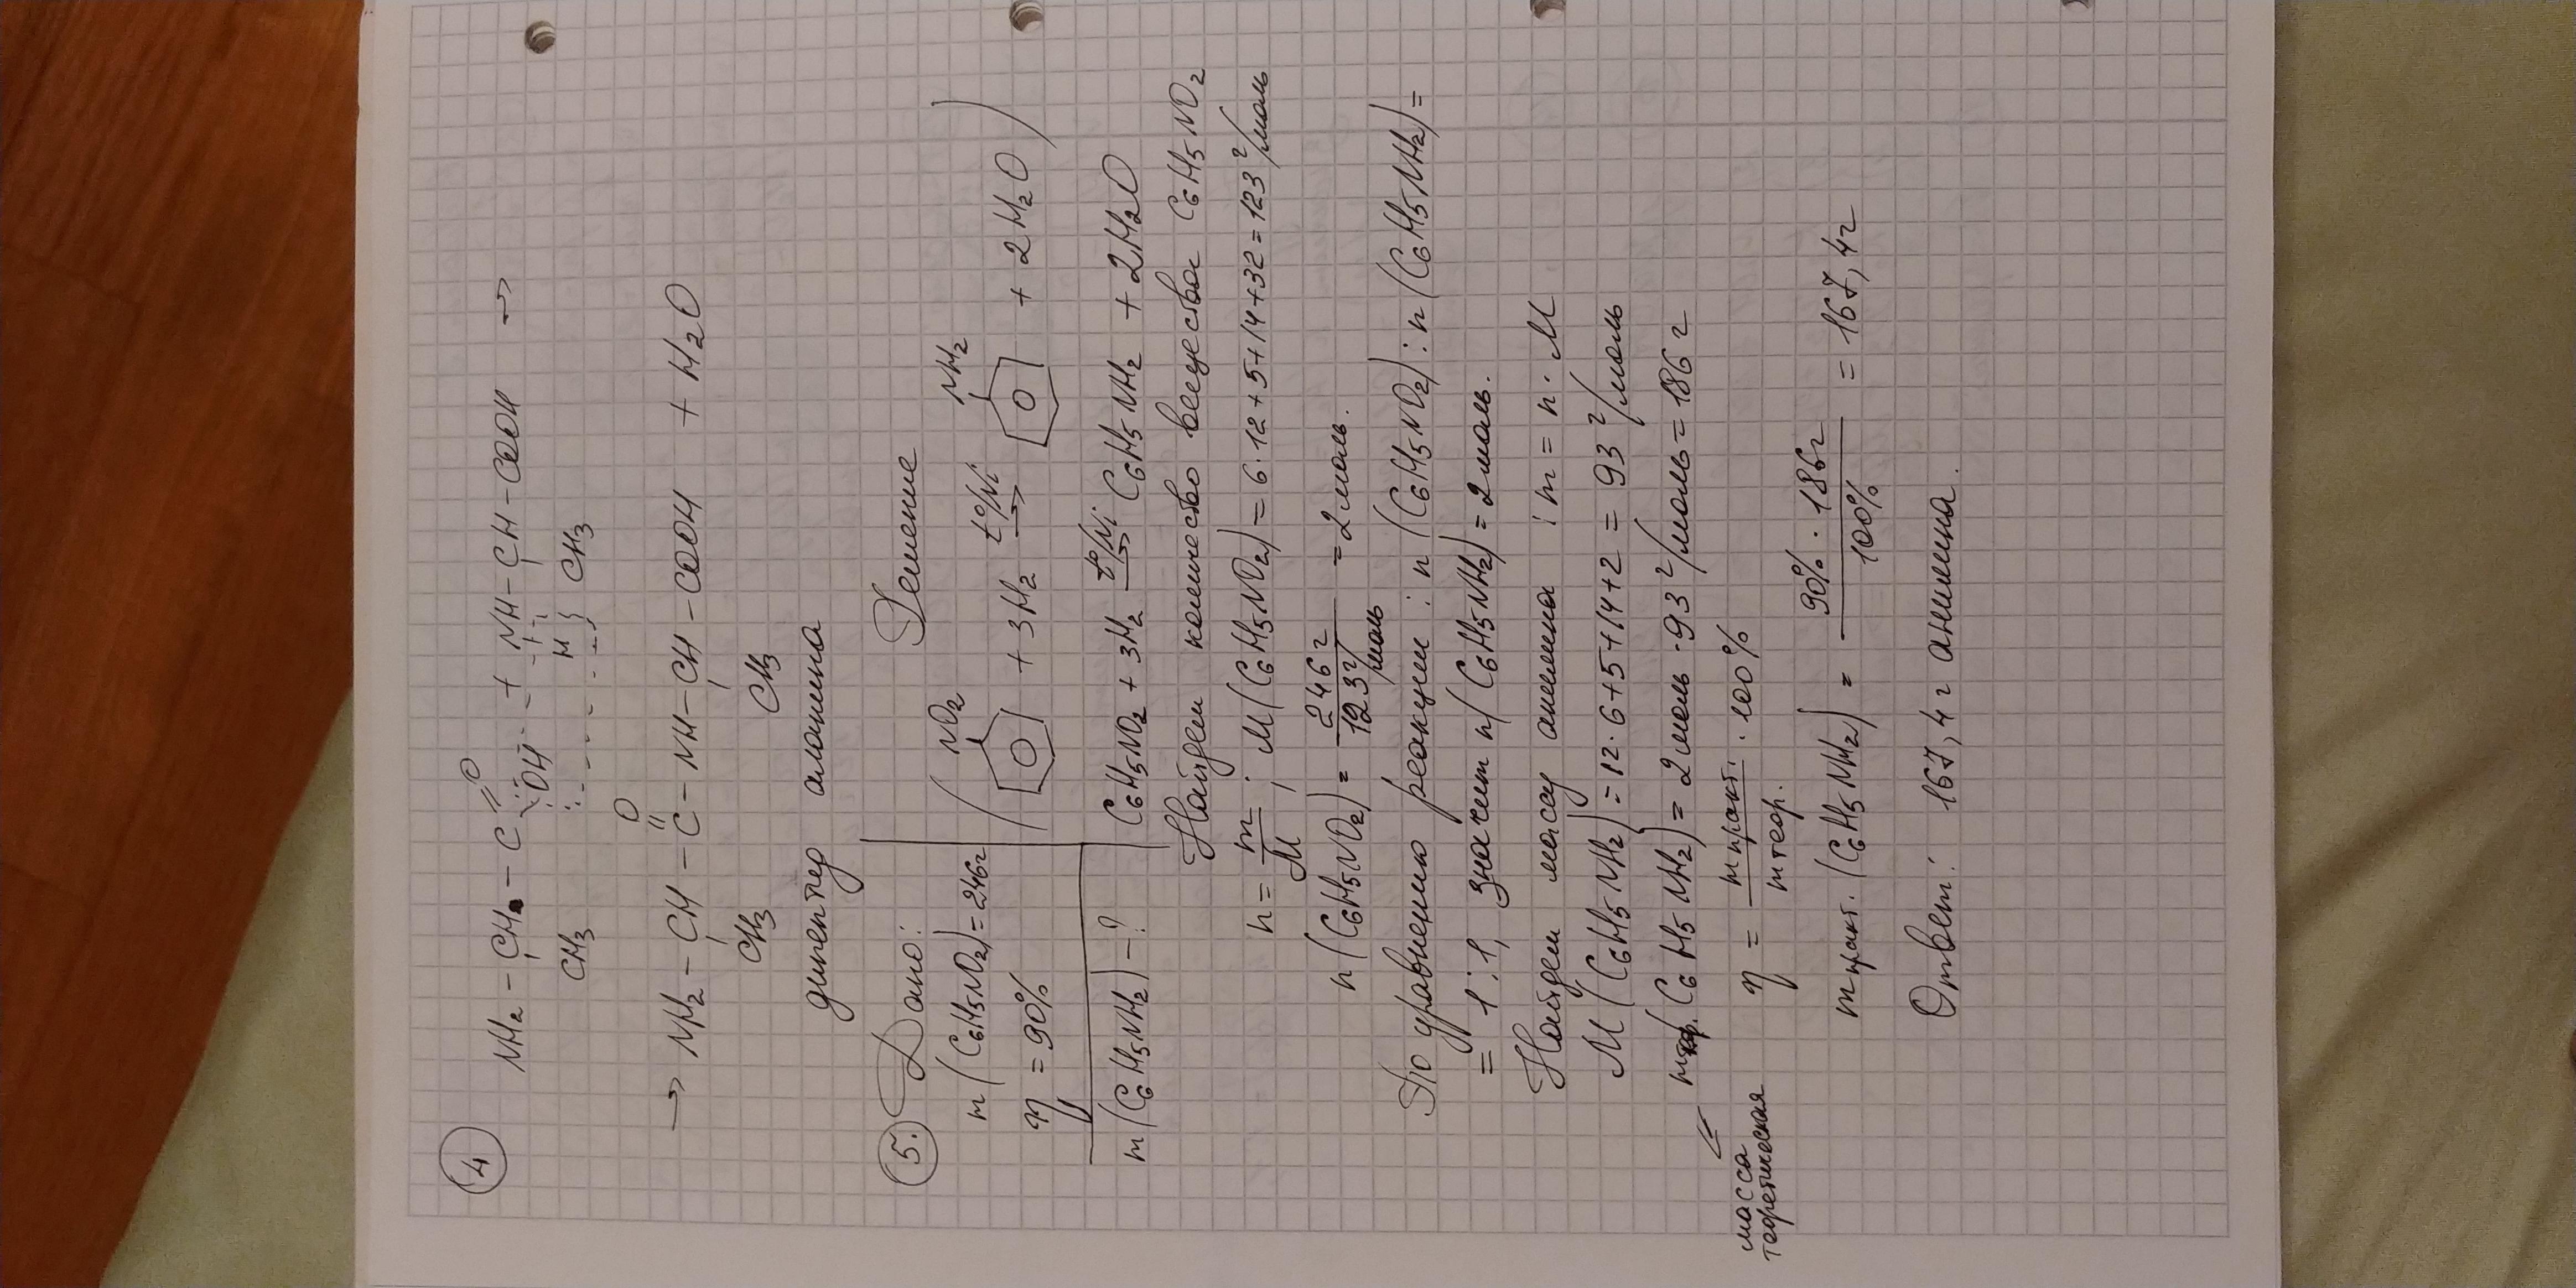 4
O
NH2 - CH - C OH + NH - CH - COOH →
CH3 H CH3
O
→ NH2 - CH - C - NH - CH - COOH + H2O
CH3 CH3
дипептид аланина
5. Дано: Решение
m(C6H5NO2) = 246г
NO2 NH2
( + 3H2 t°/Ni → + 2H2O )
η = 90%
m(C6H5NH2) - ?
C6H5NO2 + 3H2 t°/Ni → C6H5NH2 + 2H2O
Найдем количество вещества C6H5NO2
n = m/M ; M(C6H5NO2) = 6·12+5+14+32 = 123 г/моль
n(C6H5NO2) = 246 г / 123 г/моль = 2 моль.
По уравнению реакции: n(C6H5NO2) : n(C6H5NH2) =
= 1:1, значит n(C6H5NH2) = 2 моль.
Найдем массу анилина : m = n · M
M(C6H5NH2) = 12·6+5+14+2 = 93 г/моль
mтеор. (C6H5NH2) = 2 моль · 93 г/моль = 186 г
масса
теоретическая
η = m практ. / m теор. · 100%
m практ. (C6H5NH2) = 90% · 186г / 100% = 167,4г
Ответ: 167,4 г анилина.